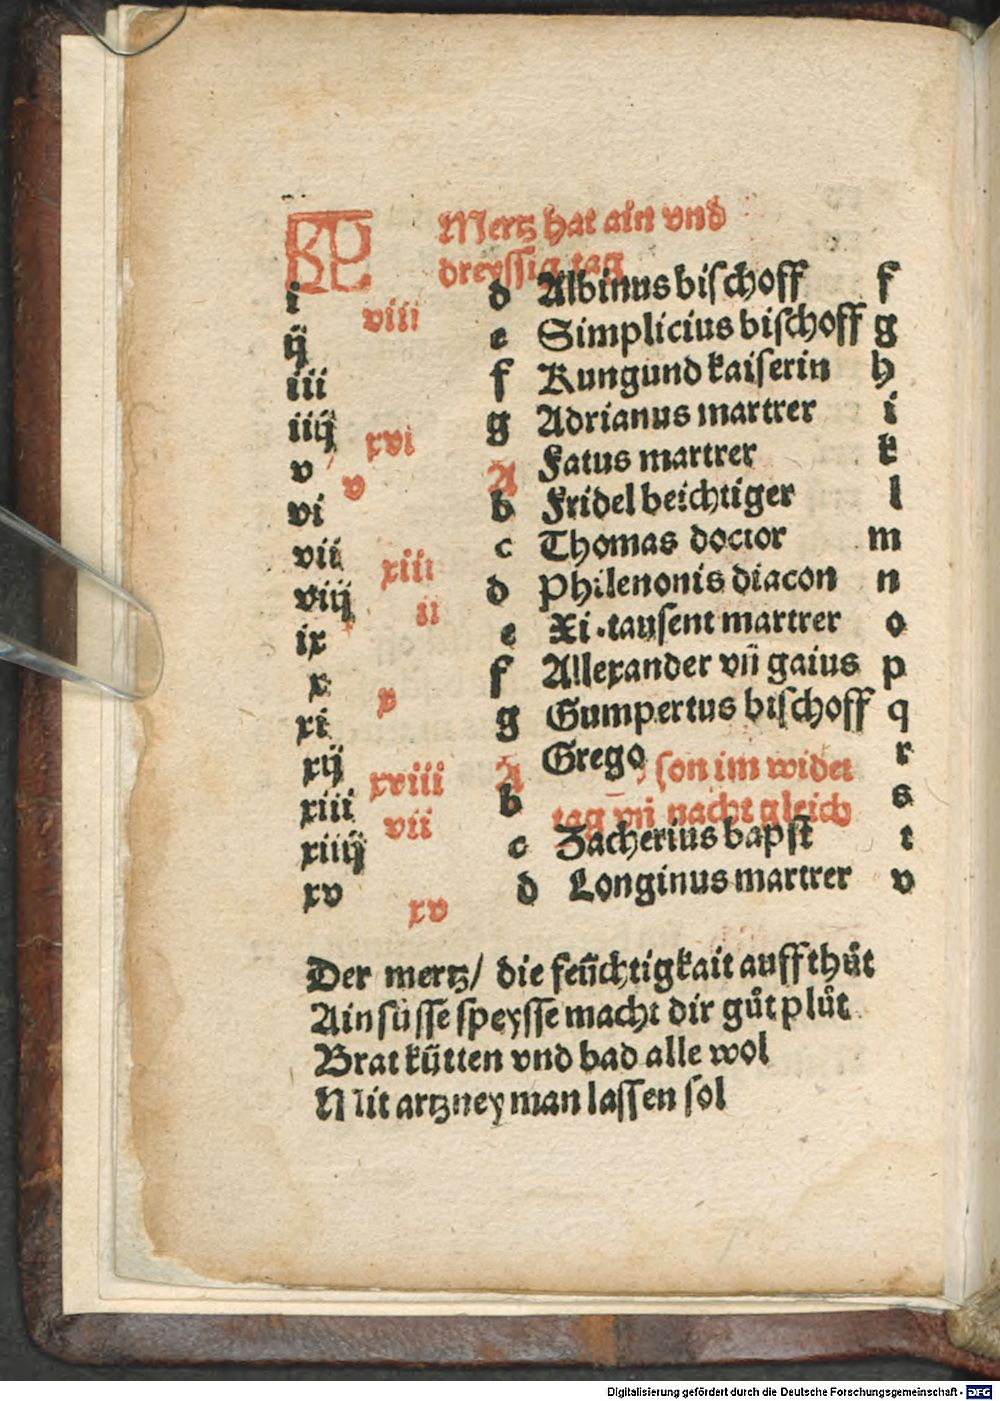 KL Mertz hat ain vnd
dreyssig tag
i d Albinus bischoff f
ij viii e Simplicius bischoff g
iii f Kungund kaiserin h
iiij g Adrianus martrer i
v xvi A Fatus martrer k
vi v b Fridel beichtiger l
vii c Thomas doctor m
viij xiii d Philenonis diacon n
ix ii e Xi.tausent martrer o
x f Allexander vñ gaius p
xi x g Gumpertus bischoff q
xij A Grego son im wider r
xiii xviii b tag vñ nacht gleich s
xiiij vii c Zacherius bapst t
xv d Longinus martrer v
xv
Der mertz/ die feüchtigkait auff thůt
Ain süsse speysse macht dir gůt plůt
Brat kütten vnd bad alle wol
Mit artzney man lassen sol
Digitalisierung gefördert durch die Deutsche Forschungsgemeinschaft - DFG